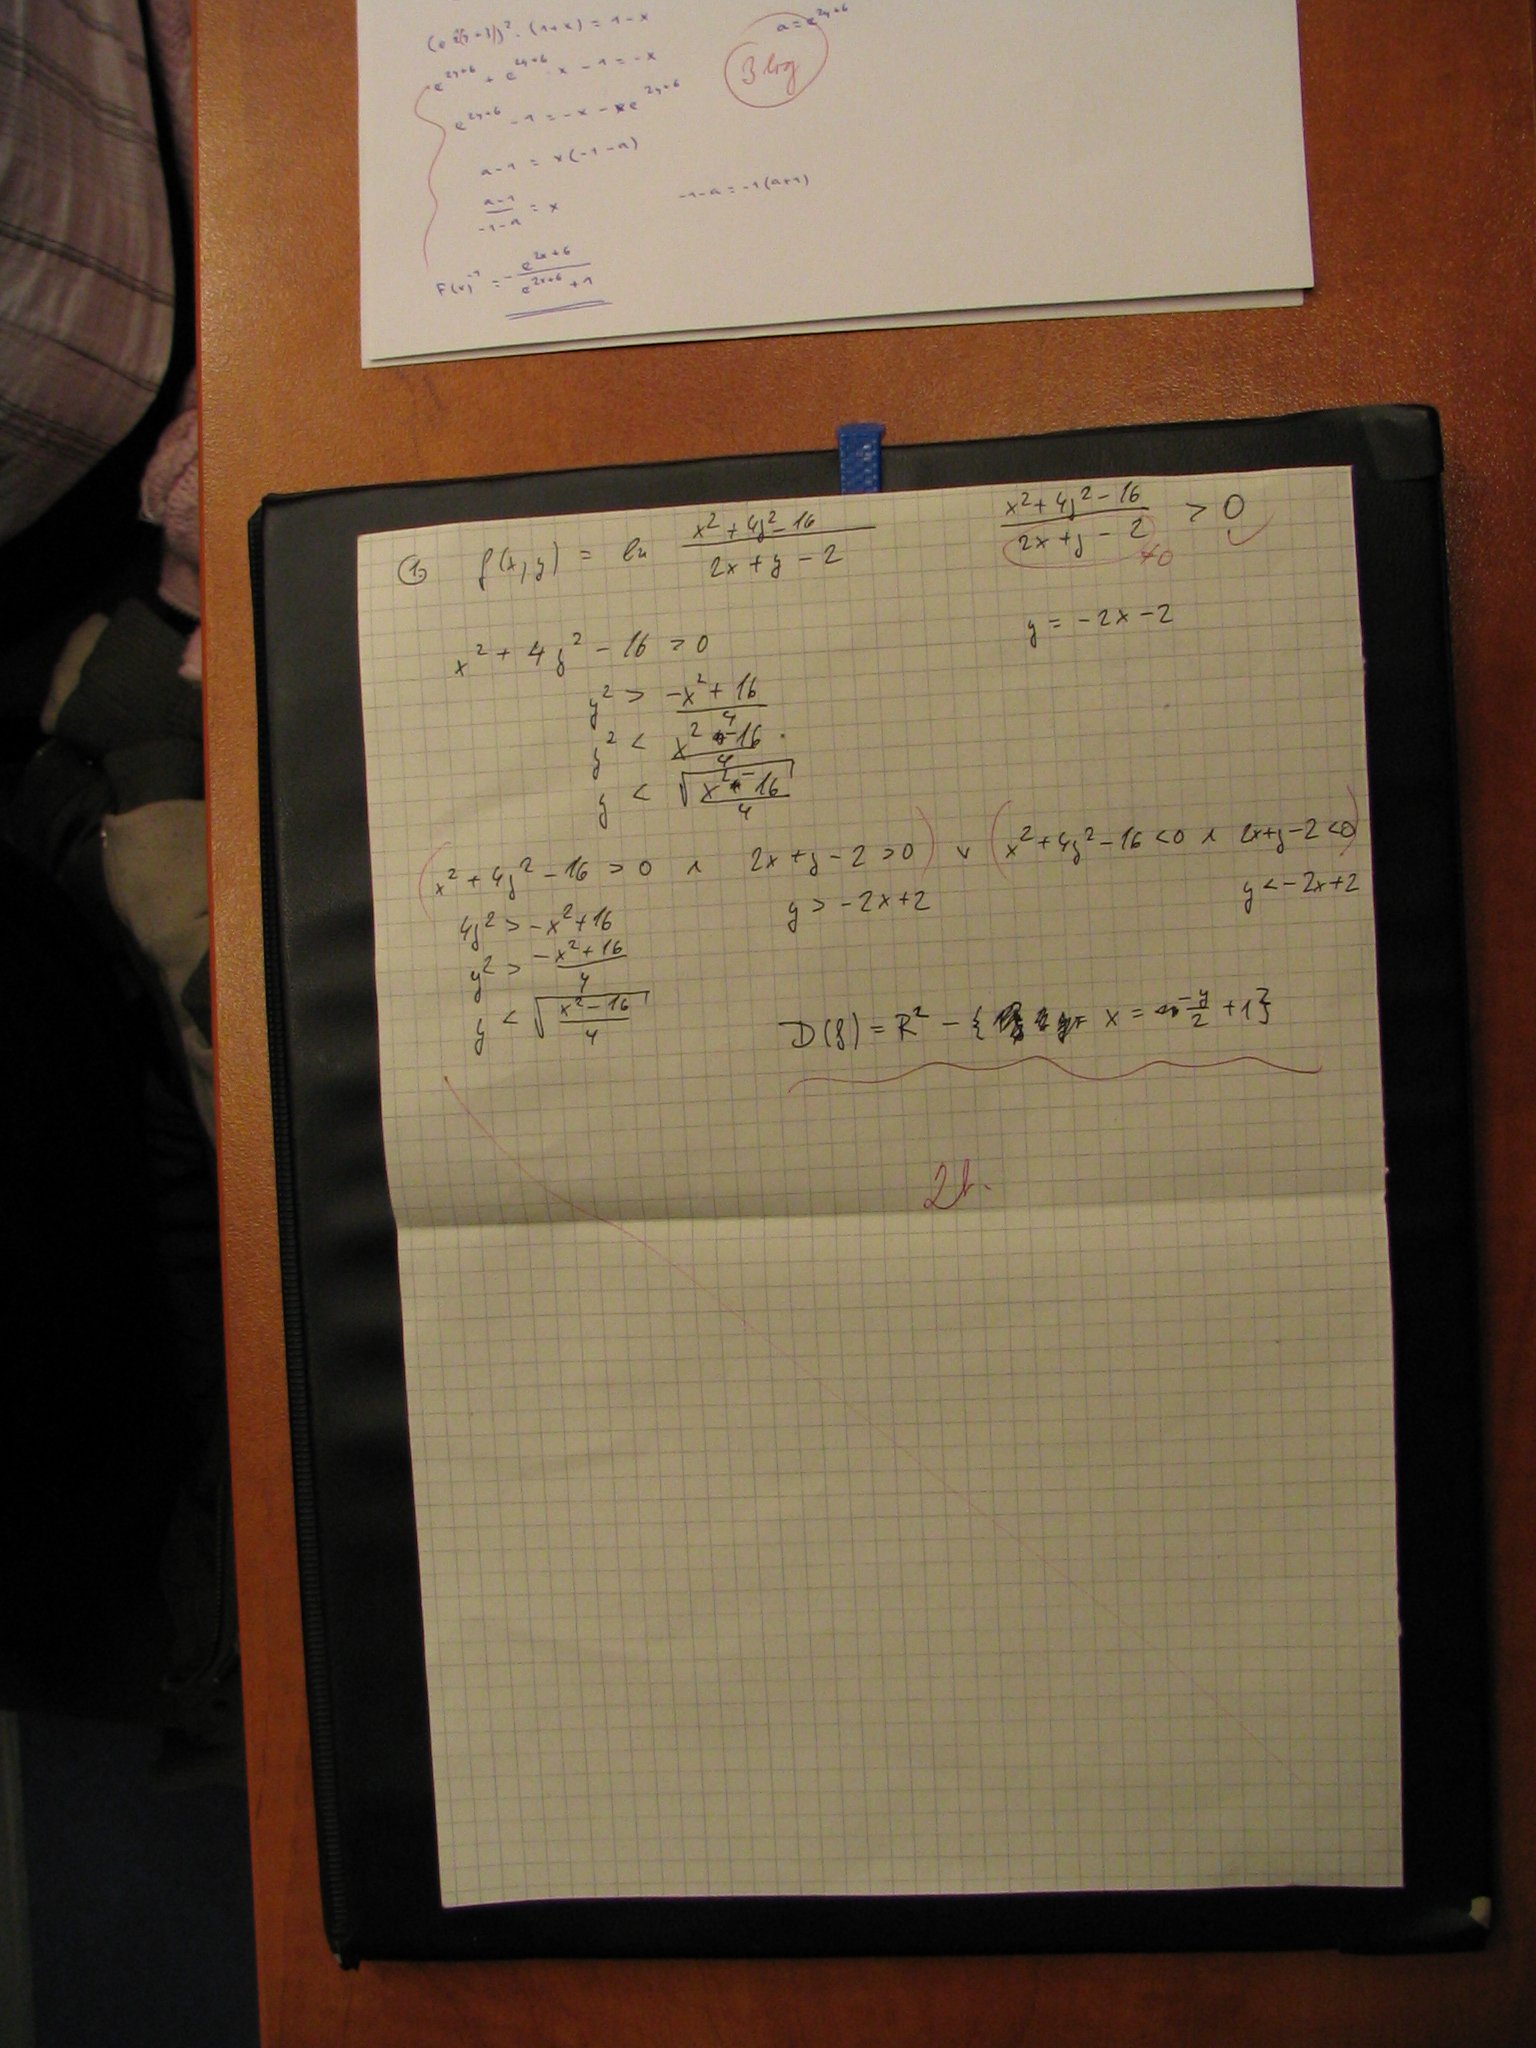 (e^{2(y+3)})^2 · (1+x) = 1-x
a = e^{2y+6}
e^{2y+6} + e^{2y+6} · x - 1 = -x
3 log
e^{2y+6} - 1 = -x - xe^{2y+6}
a-1 = x(-1-a)
\frac{a-1}{-1-a} = x
-1-a = -1(a+1)
F(x)^{-1} = -\frac{e^{2x+6}}{e^{2x+6}+1}
1. f(x,y) = ln \frac{x^2+4y^2-16}{2x+y-2}
\frac{x^2+4y^2-16}{2x+y-2} > 0
≠0
y = -2x-2
x^2 + 4y^2 - 16 > 0
y^2 > \frac{-x^2+16}{4}
y^2 < \frac{x^2-16}{4}
y < \sqrt{\frac{x^2-16}{4}}
(x^2+4y^2-16 > 0 ∧ 2x+y-2 > 0) ∨ (x^2+4y^2-16 < 0 ∧ 2x+y-2 < 0)
4y^2 > -x^2+16
y > -2x+2
y < -2x+2
y^2 > \frac{-x^2+16}{4}
y < \sqrt{\frac{x^2-16}{4}}
D(f) = R^2 - { x = -\frac{y}{2} + 1}
2b.